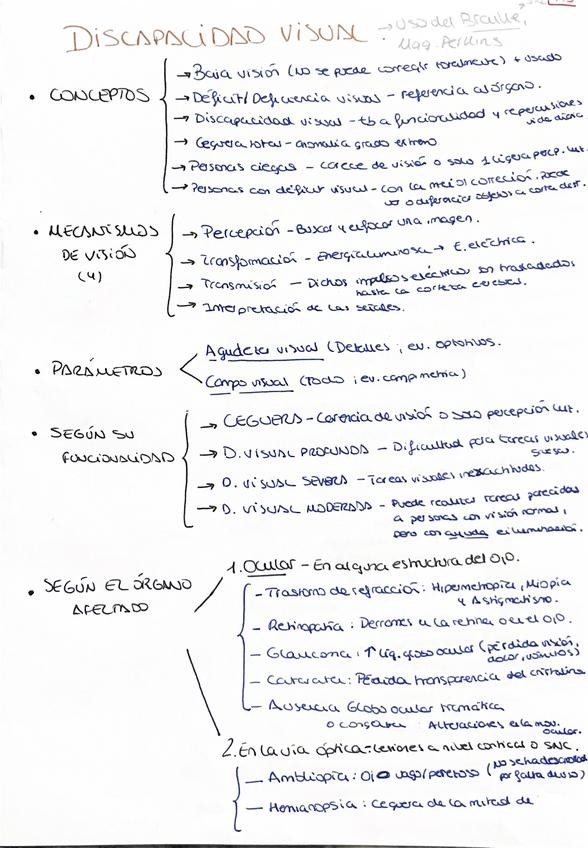 DISCAPACIDAD VISUAL : → Uso del Braille,
Maq. Perkins
• CONCEPTOS
→ Baja visión (No se puede corregir totalmente) + usado
→ Déficit/Deficiencia visual - referencia al órgano.
→ Discapacidad visual - tb a funcionalidad y repercusiones
vida diaria
→ Ceguera total - anomalía grado extremo
→ Personas ciegas - carece de visión o solo 1 ligera percp. lut.
→ Personas con déficit visual - con la mejor corrección, puede
ver o diferenciar objetos a corta dist.
• MECANISMOS
DE VISIÓN
(4)
→ Percepción - Buscar y enfocar una imagen.
→ Transformación - Energía luminosa → E. eléctrica.
→ Transmisión - Dichos impulsos eléctricos son trasladados
hasta la corteza cerebral.
→ Interpretación de las señales.
• PARÁMETROS
Agudeza visual (Detalles ; ev. optotipos.
Campo visual (Todo ; ev. campimetría)
• SEGÚN SU
FUNCIONALIDAD
→ CEGUERA - Carencia de visión o solo percepción lut.
→ D. VISUAL PROFUNDA - Dificultad para tareas visuales
→ D. VISUAL SEVERA - Tareas visuales inexactitudes.
→ D. VISUAL MODERADA - Puede realizar tareas parecidas
a personas con visión normal,
pero con ayuda e iluminación.
• SEGÚN EL ÓRGANO
AFECTADO
1. Ocular - En alguna estructura del ojo.
- Trastorno de refracción : Hipermetropía, Miopía
y Astigmatismo.
- Retinopatía : Derrames en la retina o en el ojo.
- Glaucoma : ↑ líq. ocular (pérdida visión,
dolor, vómitos)
- Catarata : Pédida transparencia del cristalino
- Ausencia Globo ocular
o congénita Alteraciones en la mov.
ocular.
2. En la vía óptica - Lesiones a nivel cortical o SNC.
- Ambliopía : Ojo vago/perezoso (No se ha desarrollado
por falta de uso)
- Hemianopsia : Ceguera de la mitad de